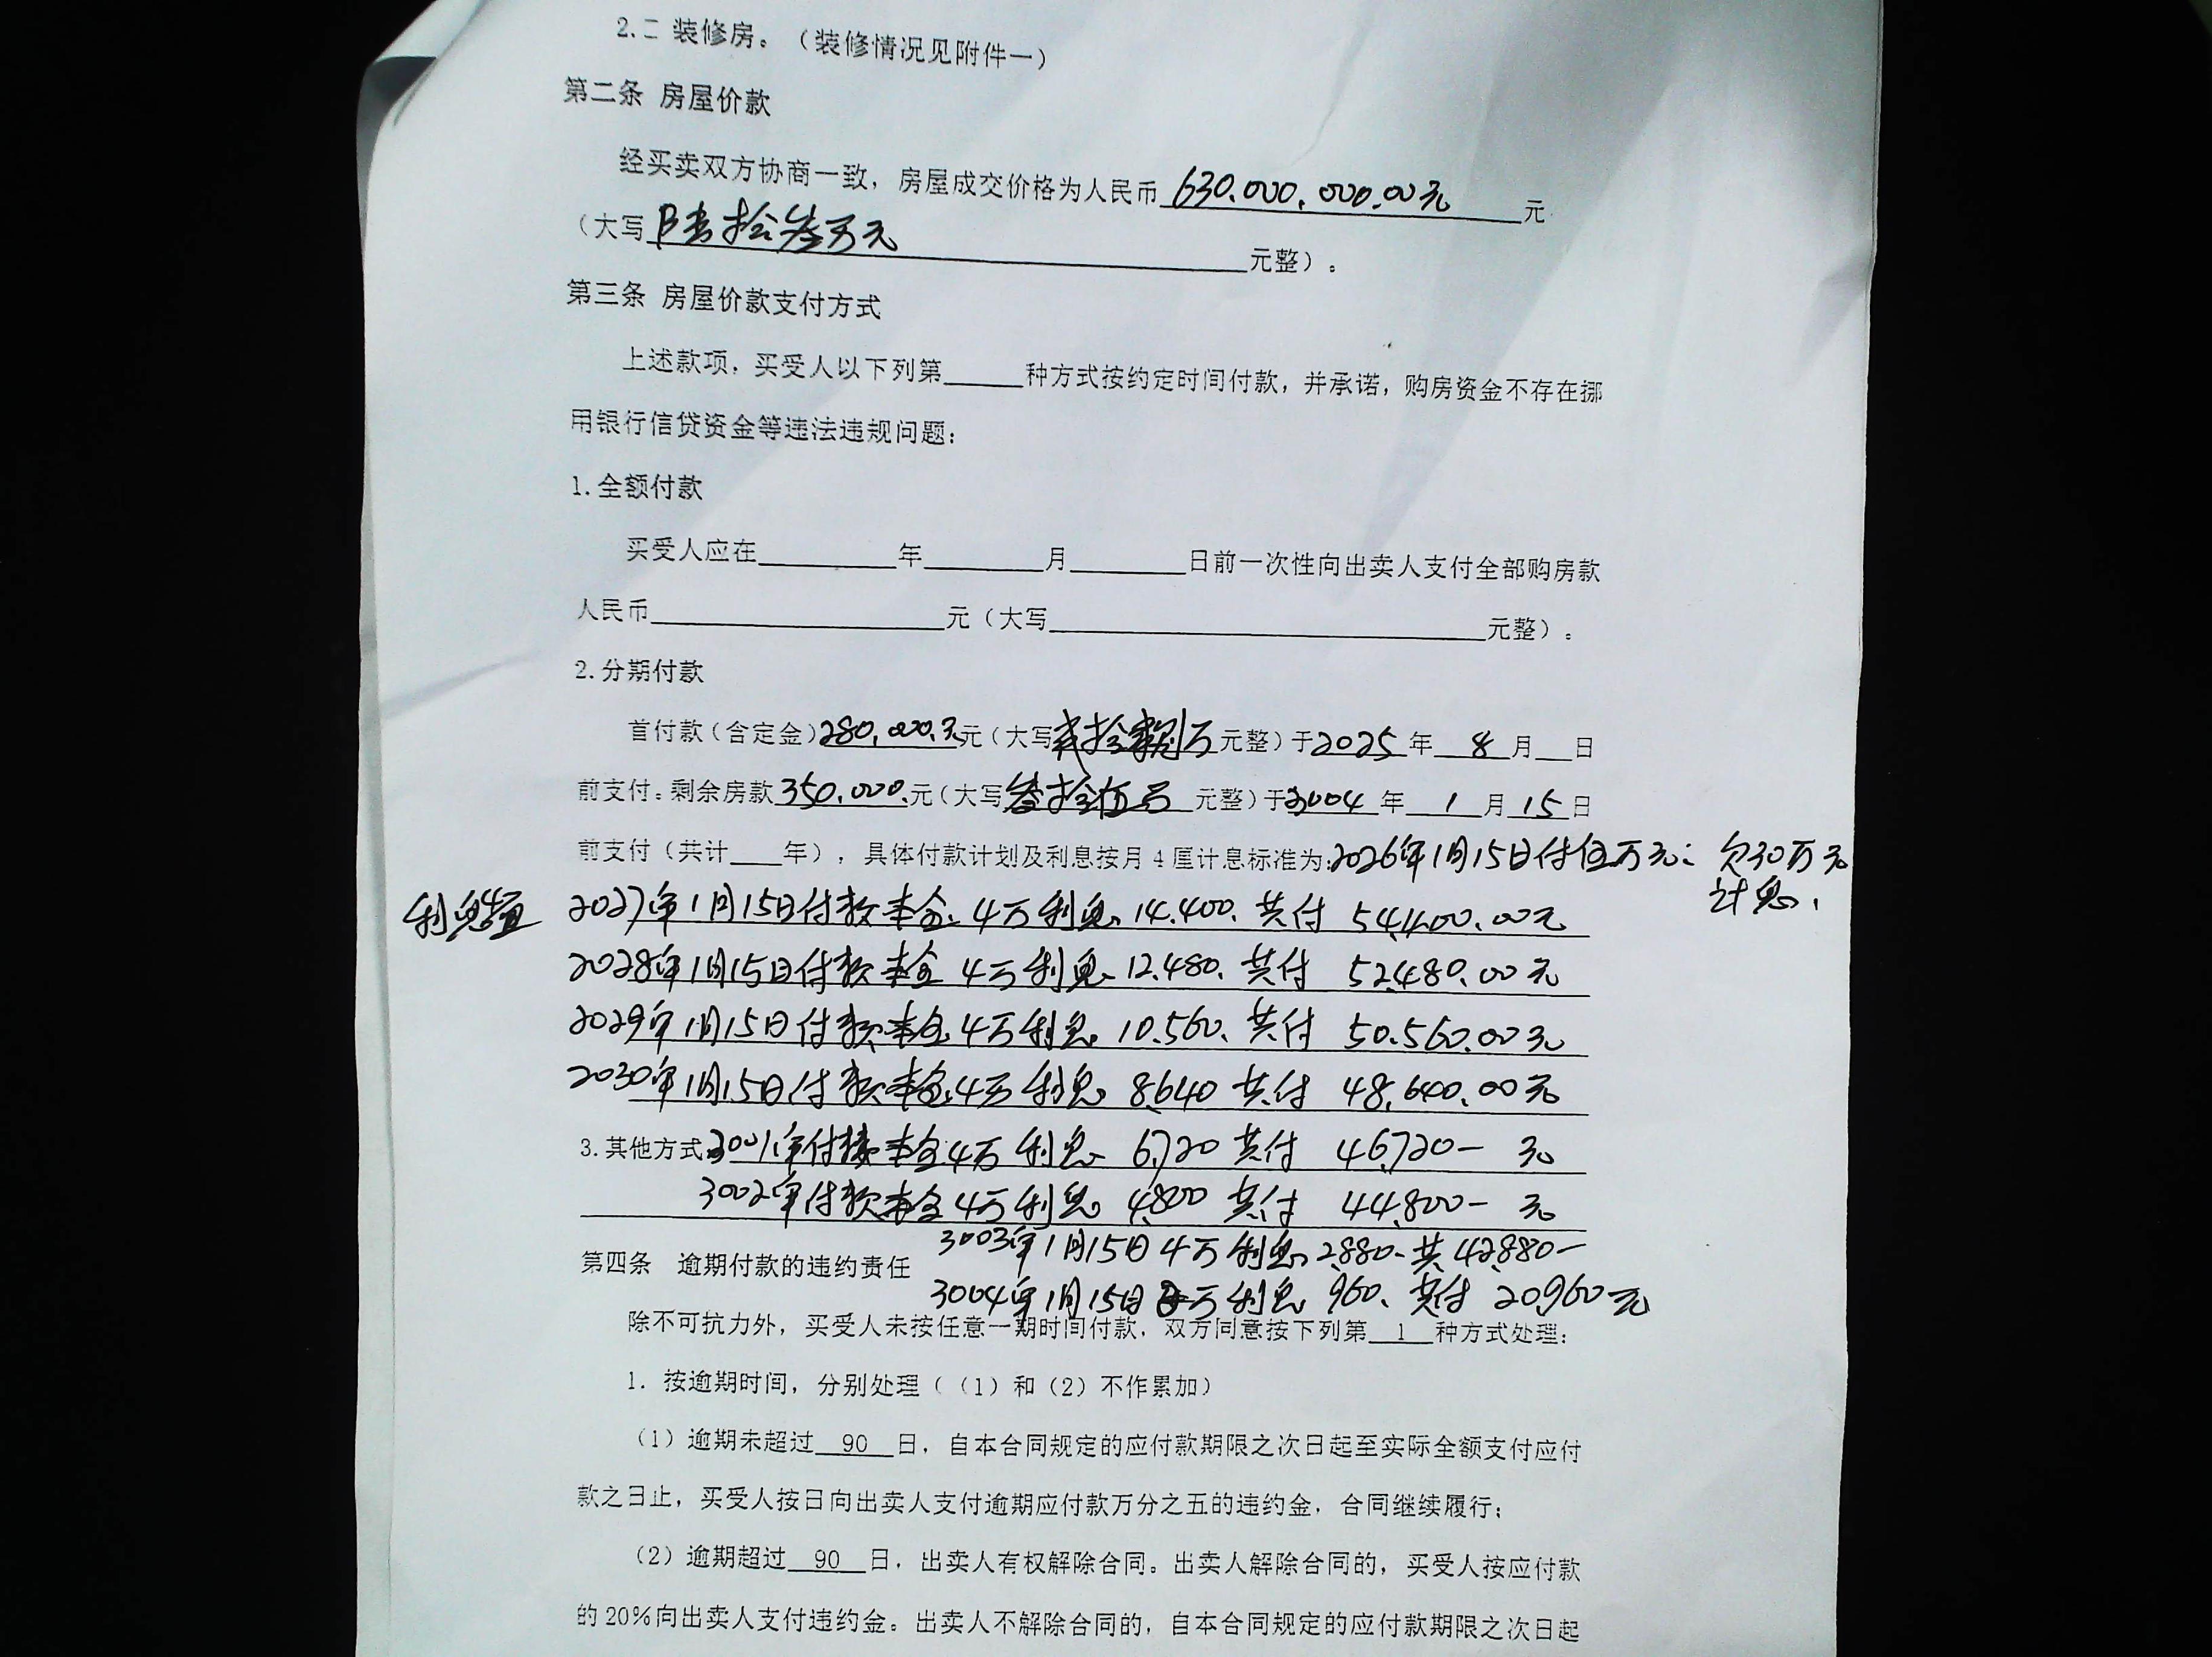 2.二 装修房。（装修情况见附件一）
第二条 房屋价款
经买卖双方协商一致，房屋成交价格为人民币 630.000,000.00元 元
（大写 陆拾叁万元 元整）。
第三条 房屋价款支付方式
上述款项，买受人以下列第______种方式按约定时间付款，并承诺，购房资金不存在挪
用银行信贷资金等违法违规问题：
1.全额付款
买受人应在______年______月______日前一次性向出卖人支付全部购房款
人民币______元（大写______元整）。
2.分期付款
首付款（含定金）280,000.元元（大写贰拾捌万 元整）于2025 年 8 月__日
前支付：剩余房款350.000.元（大写叁拾伍万 元整）于3004 年 1 月 15 日
前支付（共计___年），具体付款计划及利息按月 4 厘计息标准为：2026年1月15日付伍万元：欠30万元
计息、
利息 2027年1月15日付款本金、4万利息、14.400、共付 54,400.00元
2028年1月15日付款本金 4万利息、12.480、共付 52.480.00元
2029年1月15日付款本金4万利息、10.560、共付 50.560.00元
2030年1月15日付款本金4万利息、8640 共付 48,640.00元
3.其他方式 3001年付款本金4万利息、6720 共付 46720— 元
3002年付款本金4万利息、4800 共付 44800— 元
3003年1月15日4万利息、2880、共42880—
第四条 逾期付款的违约责任
3004年1月15日2万利息 960、共付 20960元
除不可抗力外，买受人未按任意一期时间付款，双方同意按下列第 1 种方式处理：
1. 按逾期时间，分别处理（（1）和（2）不作累加）
（1）逾期未超过 90 日，自本合同规定的应付款期限之次日起至实际全额支付应付
款之日止，买受人按日向出卖人支付逾期应付款万分之五的违约金，合同继续履行；
（2）逾期超过 90 日，出卖人有权解除合同。出卖人解除合同的，买受人按应付款
的 20%向出卖人支付违约金。出卖人不解除合同的，自本合同规定的应付款期限之次日起